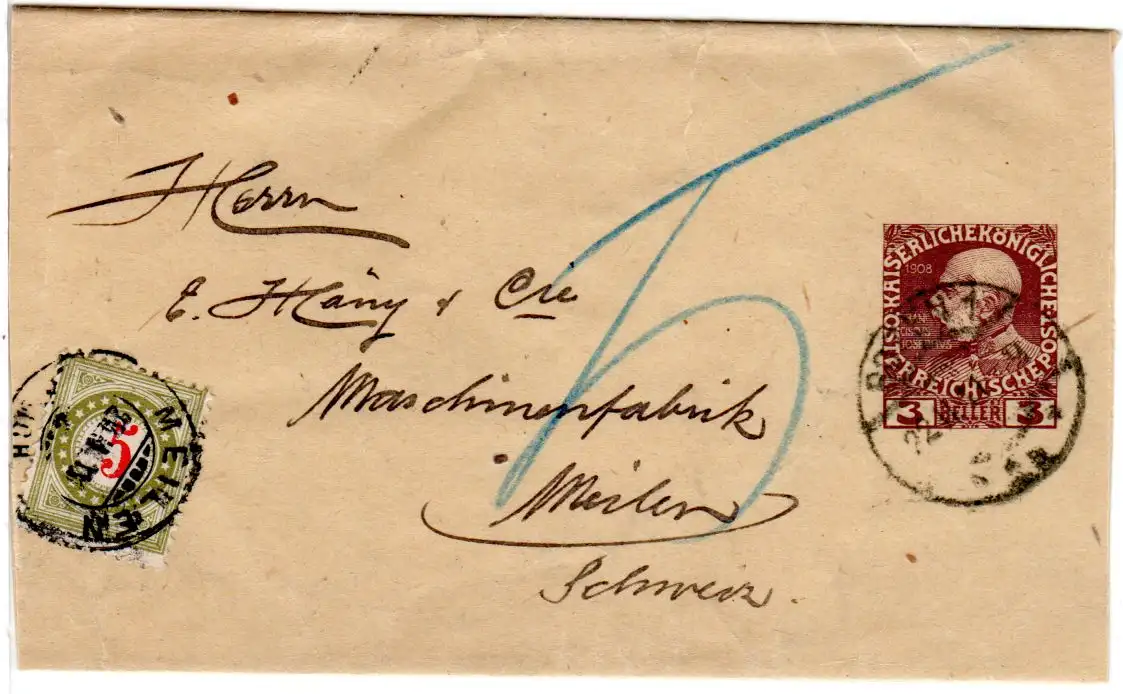 Herrn
E. Häny & Cie
Maschinenfabrik
Meilen
Schweiz.
5
KAISERLICHEKÖNIGLICHE
ÖSTERREICHISCHEPOST
1908
3 HELLER 3
MEILEN
5